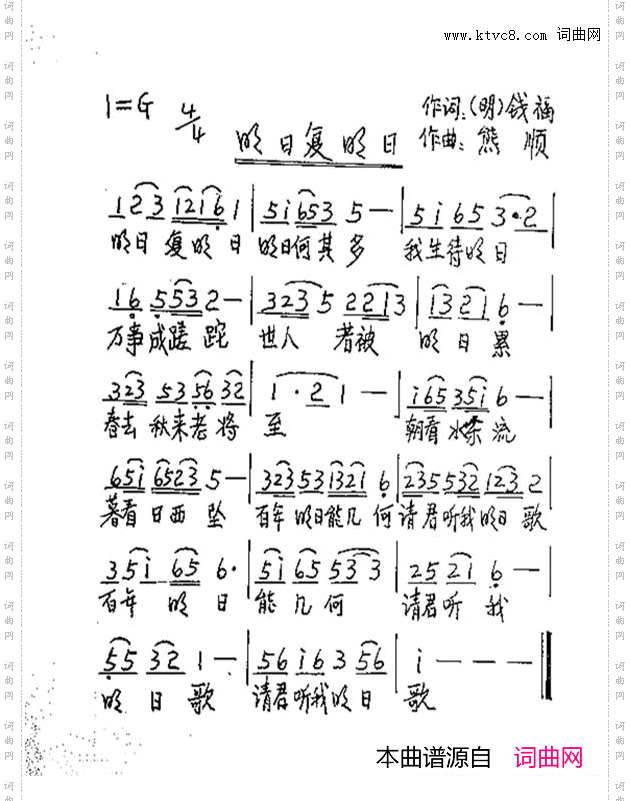 www.ktvc8.com 词曲网
1=G 4/4
作词:(明)钱福
明日复明日
作曲:熊 顺
1 2 3 1 2 1 6 1 | 5 i 6 5 3 5 — | 5 i 6 5 3·2 |
明日 复明 日 明日何其 多 我生待明日
1 6 5 5 5 3 2 — | 3 2 3 5 2 2 1 3 | 1 3 2 1 6 — |
万事成蹉 跎 世人 若被 明 日 累
3 2 3 5 3 5 6 3 2 | 1 · 2 1 — | i 6 5 3 5 i 6 — |
春去 秋来老 将 至 朝看水东 流
6 5 i 6 5 2 3 5 — | 3 2 3 5 3 1 3 2 1 6 | 2 3 5 5 3 2 1 2 3 2
暮看 日西 坠 百年 明日能几 何 请君听我明日 歌
3 5 i 6 5 6· | 5 i 6 5 5 3 3 | 2 5 2 1 6 — |
百年 明 日 能 几 何 请君听 我
5 5 3 2 1 — | 5 6 i 6 3 5 6 | i — — —
明 日 歌 请君听我明日 歌
本曲谱源自 词曲网